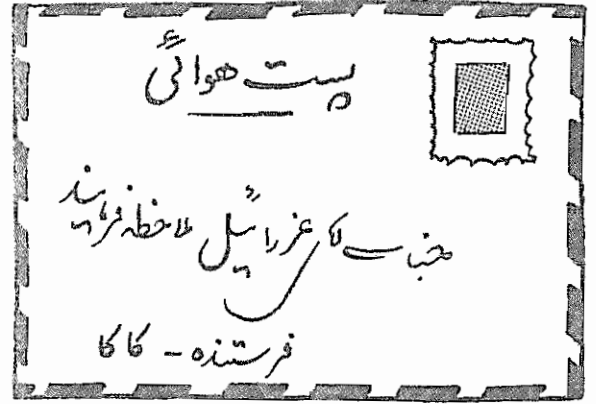 پست هوائی
جناب آقای عزرائیل ملاحظه فرمایند
فرستنده - کاکا